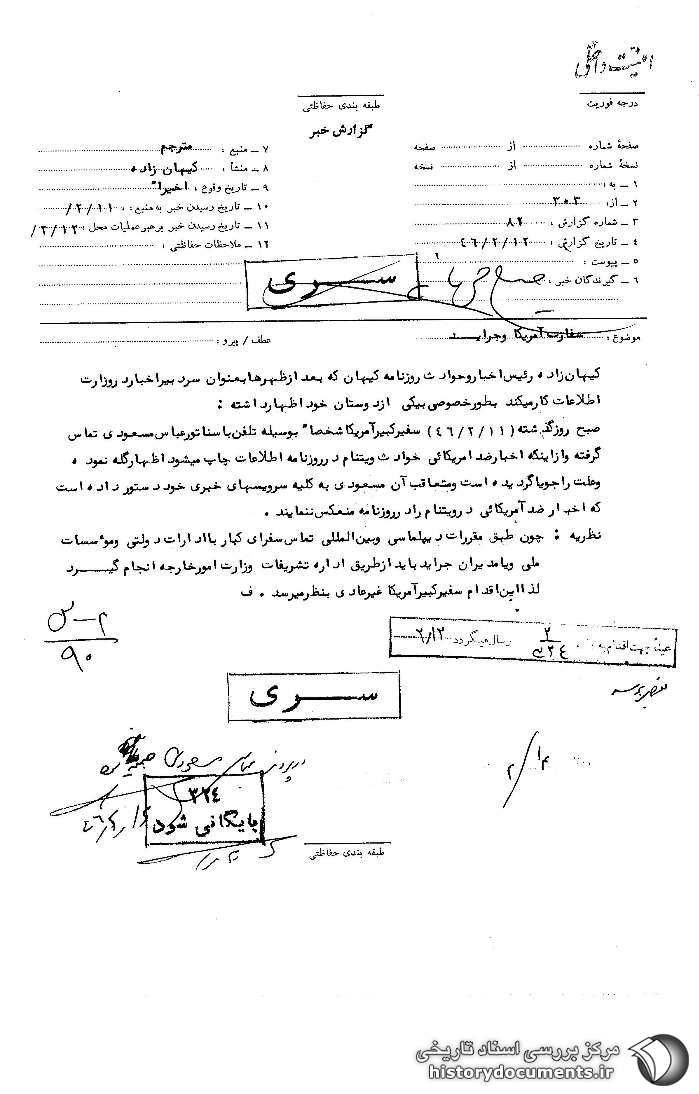 درجه فوریت
طبقه بندی حفاظتی
گزارش خبر
صفحهٔ شماره از صفحه
نسخهٔ شماره از نسخه
۱ ـ به :
۲ ـ از : ۳۰۳
۳ ـ شماره گزارش : ۸۲
۴ ـ تاریخ گزارش : ۴۶/۲/۱۲
۵ ـ پیوست :
۶ ـ گیرندگان خبر :
۷ ـ منبع : مترجم
۸ ـ منشأ : کیهان زاده
۹ ـ تاریخ وقوع : اخیراً
۱۰ ـ تاریخ رسیدن خبر به منبع : ۲/۱۱/
۱۱ ـ تاریخ رسیدن خبر برهبر عملیات محل : ۲/۱۲/
۱۲ ـ ملاحظات حفاظتی :
ســری
موضوع : سفارت آمریکا وجرایـــد
عطف / پیرو :
کیهان زاده رئیس اخباروحوادث روزنامه کیهان که بعد ازظهرها بعنوان سردبیر اخبارد روزارت
اطلاعات کارمیکند بطورخصوصی بیکی ازدوستان خود اظهارداشته :
صبح روزگذشته (۴۶/۲/۱۱) سفیرکبیرآمریکا شخصاً بوسیله تلفن با سناتورعباس مسعودی تماس
گرفته وازاینکه اخبارضد امریکائی حوادث ویتنام درروزنامه اطلاعات چاپ میشود اظهارگله نموده
وعلت را جویا گردیده است ومتعاقب آن مسعودی به کلیه سرویسهای خبری خود دستور داده است
که اخبار ضد آمریکائی درویتنام را درروزنامه منعکس ننمایند .
نظریه : چون طبق مقررات دیپلماسی وبین‌المللی تماس سفرای کبار با ادارات دولتی ومؤسسات
ملی ویا مدیران جراید باید ازطریق اداره تشریفات وزارت امورخارجه انجام گیـــرد
لذا این اقدام سفیرکبیرآمریکا غیرعادی بنظرمیرسد . ف
عیناً جهت اقدام به ۲ / ۳۲۴ ارسال میگردد ۲/۱۳
۹۰
ســـری
۲/۱۴
عباس مسعودی
۳۲۴
بایگانی شود
طبقه بندی حفاظتی
مرکز بررسی اسناد تاریخی
historydocuments.ir